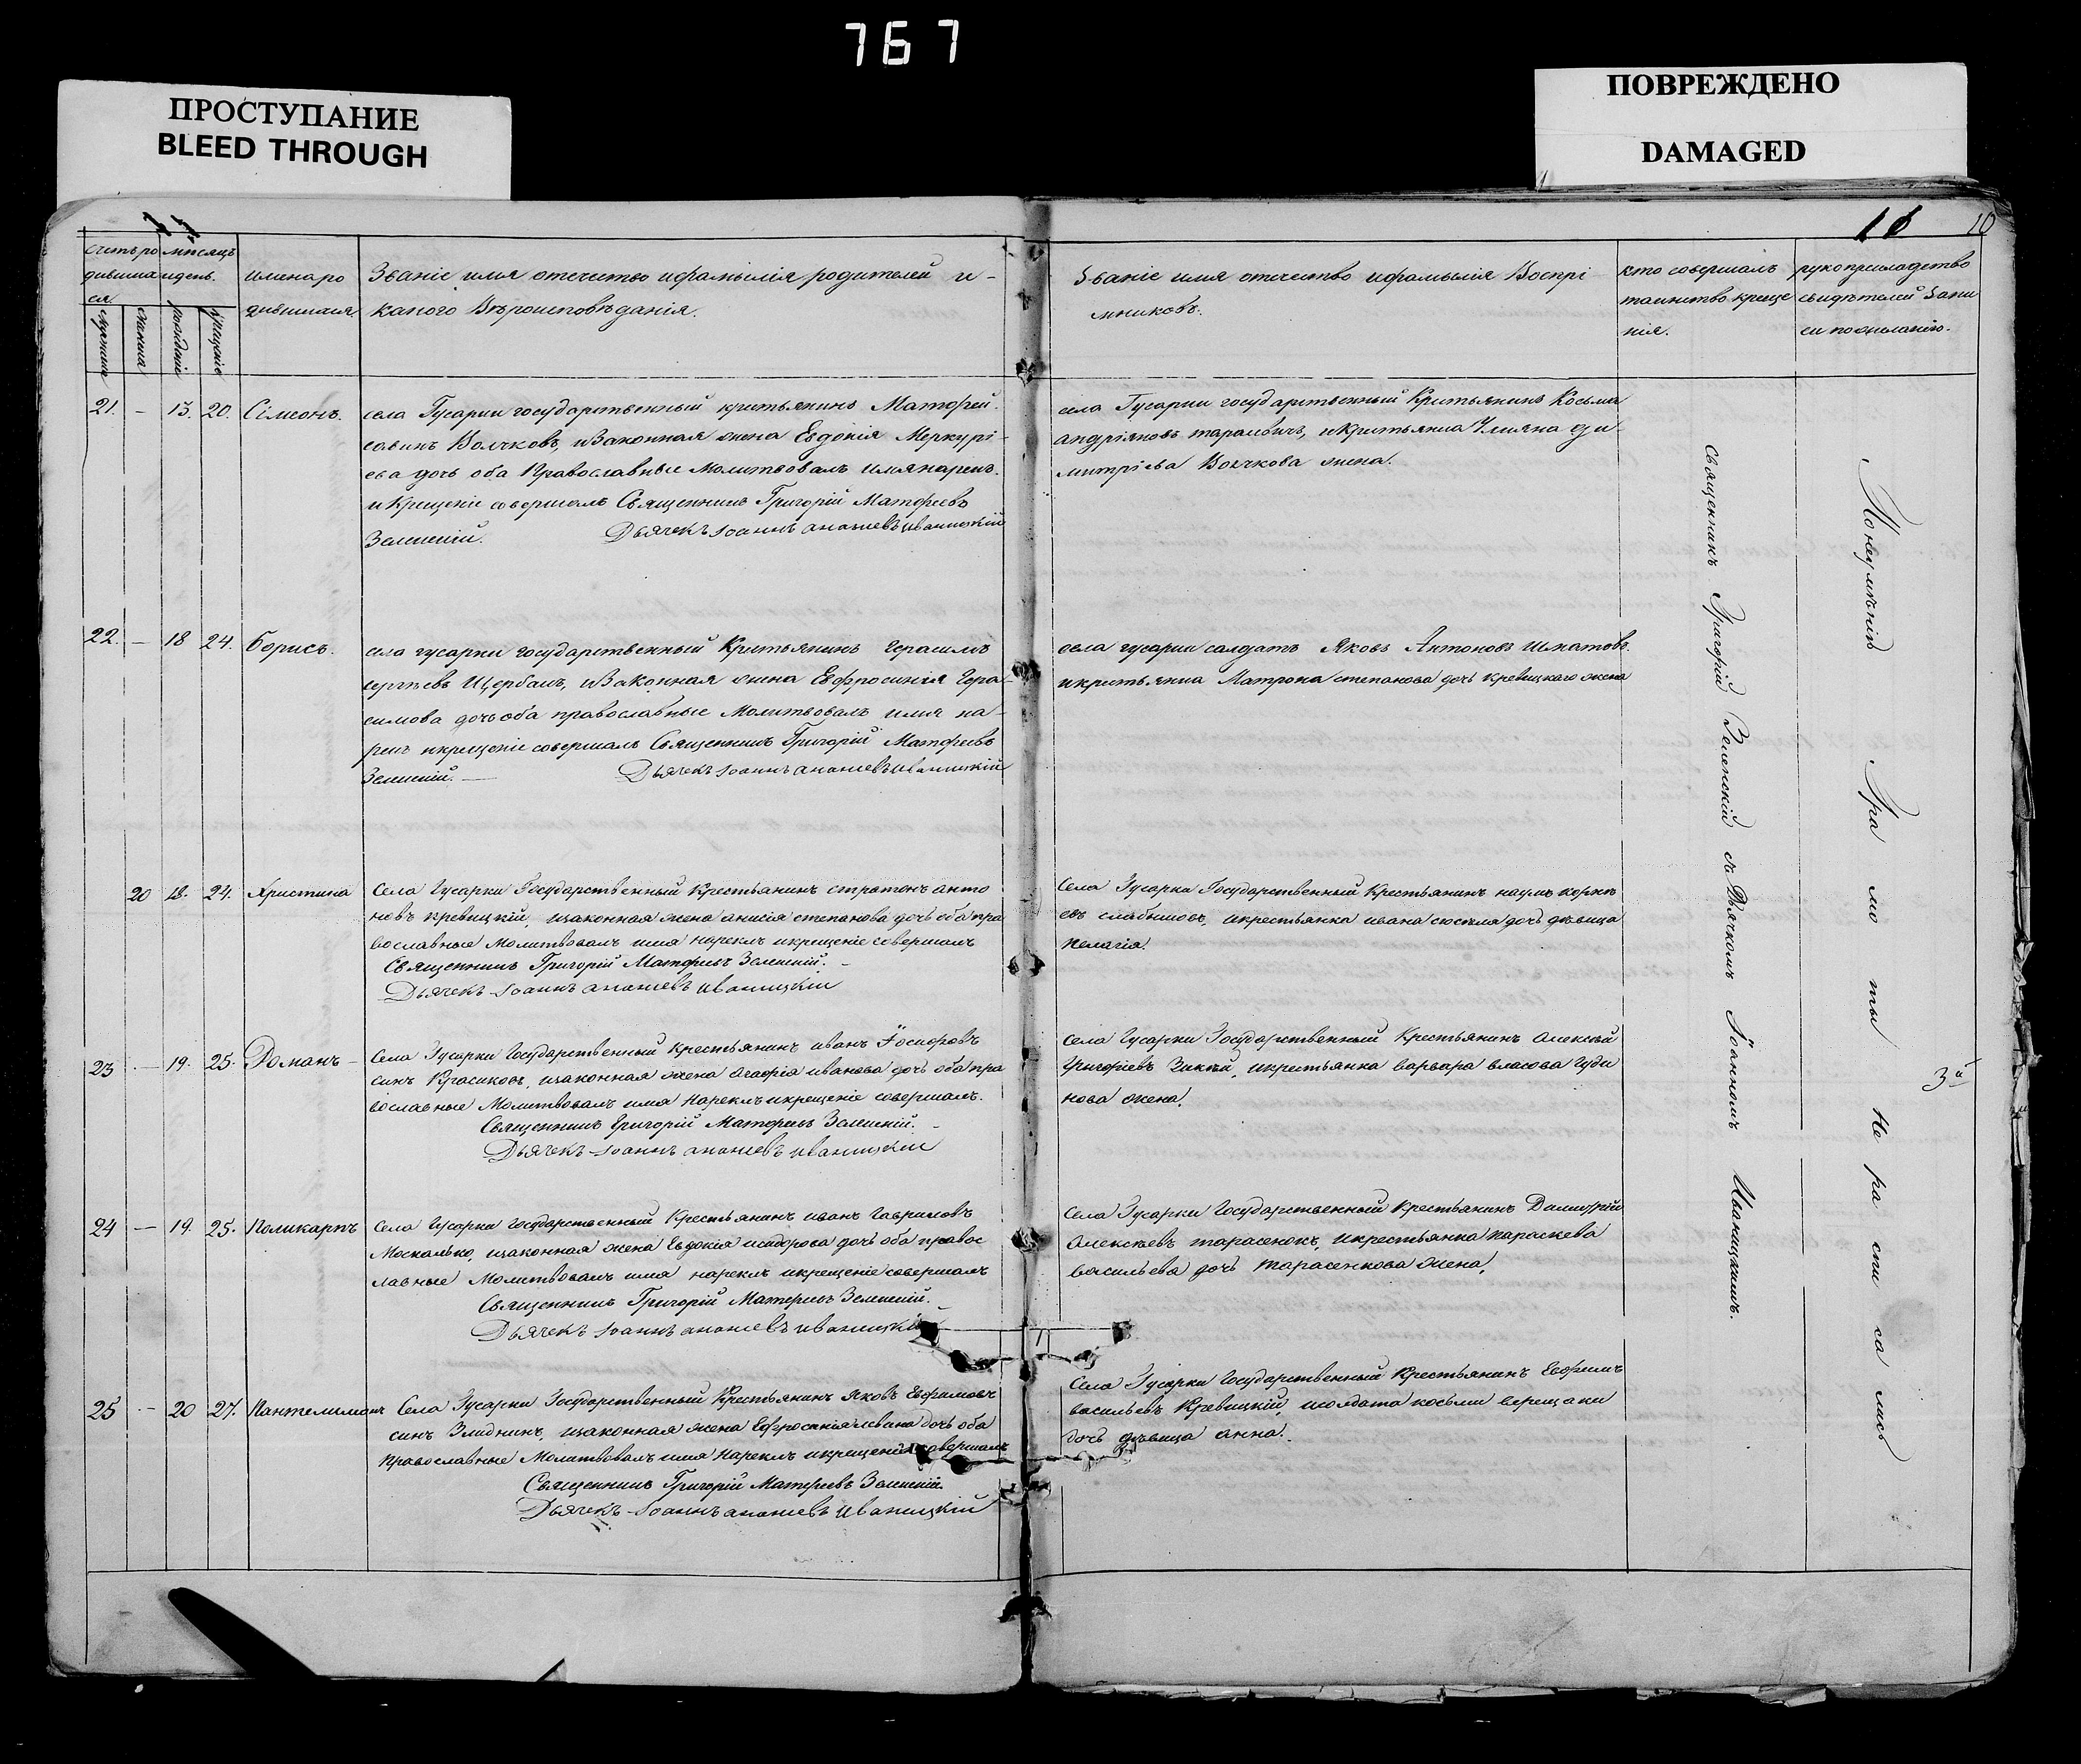 767
ПРОСТУПАНИЕ
BLEED THROUGH
ПОВРЕЖДЕНО
DAMAGED
10
счетъ ро
дившиха
ся
мѣсяцъ
идень.
имена ро
дившихся
Званіе имя отечество ифамылія родителей и
какого Вѣроисповѣданія.
Званіе имя отечество ифамылія Воспрі
мниковъ.
кто совершалъ
таинство креще
нія.
рукоприкладство
свидѣтелей Запи
си пожеланію.
мужеска
женска
рожденіе
крещеніе
21. — 13. 20. Сімеонъ.
села Гусарки государственный кристьянинъ Матфей
савинъ Волчковъ, иЗаконная жена Евдокія Меркурі-
ева дочь оба Православные Молитвовалъ имя нарекъ.
и Крещеніе совершалъ Священникъ Григорій Матфеевъ
Зеленскій. Дьячекъ Іоаннъ ананіевъ иваницкій
села Гусарки государственный Кристьянинъ Косьма
андріяновъ тарасовичъ, иКристьянка Улияна ди-
митріева Волчкова жена.
22. — 18 24. Борисъ.
села гусарки государственный Кристьянинъ Герасимъ
сергѣевъ Щербакъ, иЗаконная жена Евфросинія Гера-
симова дочь оба православные Молитвовалъ имя на-
рекъ икрещеніе совершалъ Священникъ Григорій Матфеевъ
Зеленскій. — Дьячекъ Іоаннъ ананіевъ иваницкій
села гусарки салдатъ Яковъ Антоновъ Шматовъ
икристьянка Матрона степанова дочь кревицкаго жена
20 18. 24. Христина
Села Гусарки Государственный Крестьянинъ стратонъ анто
новъ кревицкій, изаконная жена анисія степанова дочь оба пра
вославные Молитвовалъ имя нарекъ икрещеніе совершалъ
Священникъ Григорій Матфеевъ Зеленскій.
Дьячекъ Іоаннъ ананіевъ иваницкій
Села Гусарки Государственный Крестьянинъ наумъ корнѣ
евъ икрестьянка ивана дочь дѣвица
пелагія.
23 — 19. 25. Романъ —
Села Гусарки Государственный Крестьянинъ иванъ Іосифовъ
синъ Красиковъ, изаконная жена агафія иванова дочь оба пра
вославные Молитвовалъ имя нарекъ икрещеніе совершалъ.
Священникъ Григорій Матфеевъ Зеленскій.
Дьячекъ Іоаннъ ананіевъ иваницкій
Села Гусарки Государственный Крестьянинъ Алексѣй
Григоріевъ икрестьянка варвара власова Гуди
нова жена.
24 — 19. 25. Поликарпъ
Села Гусарки Государственный Крестьянинъ иванъ Гавриловъ
Москалько, изаконная жена Евдокія исидорова дочь оба правос
лавные Молитвовалъ имя нарекъ икрещеніе совершалъ
Священникъ Григорій Матфеевъ Зеленскій.
Дьячекъ Іоаннъ ананіевъ иваницкій
Села Гусарки Государственный Крестьянинъ Димитрій
Алексѣевъ тарасенокъ, икрестьянка параскева
васильева дочь тарасенкова жена.
25 — 20 27. Пантелимонъ
Села Гусарки Государственный Крестьянинъ Яковъ Евфимовъ
синъ Злиднинъ, изаконная жена Ефросинія левина дочь оба
православные Молитвовалъ имя Нарекъ икрещеніе совершалъ
Священникъ Григорій Матфеевъ Зеленскій.
Дьячекъ Іоаннъ ананіевъ иваницкій
Села Гусарки Государственный Крестьянинъ Евфимъ
васильевъ Кревицкій, исолдата косьми верещаки
дочь дѣвица анна.
Священникъ Григорій Зеленскій съ Дьячкомъ Іоанномъ Иваницкимъ.
Понеумѣнію Гра мо ты Не ра спи са лись
3й